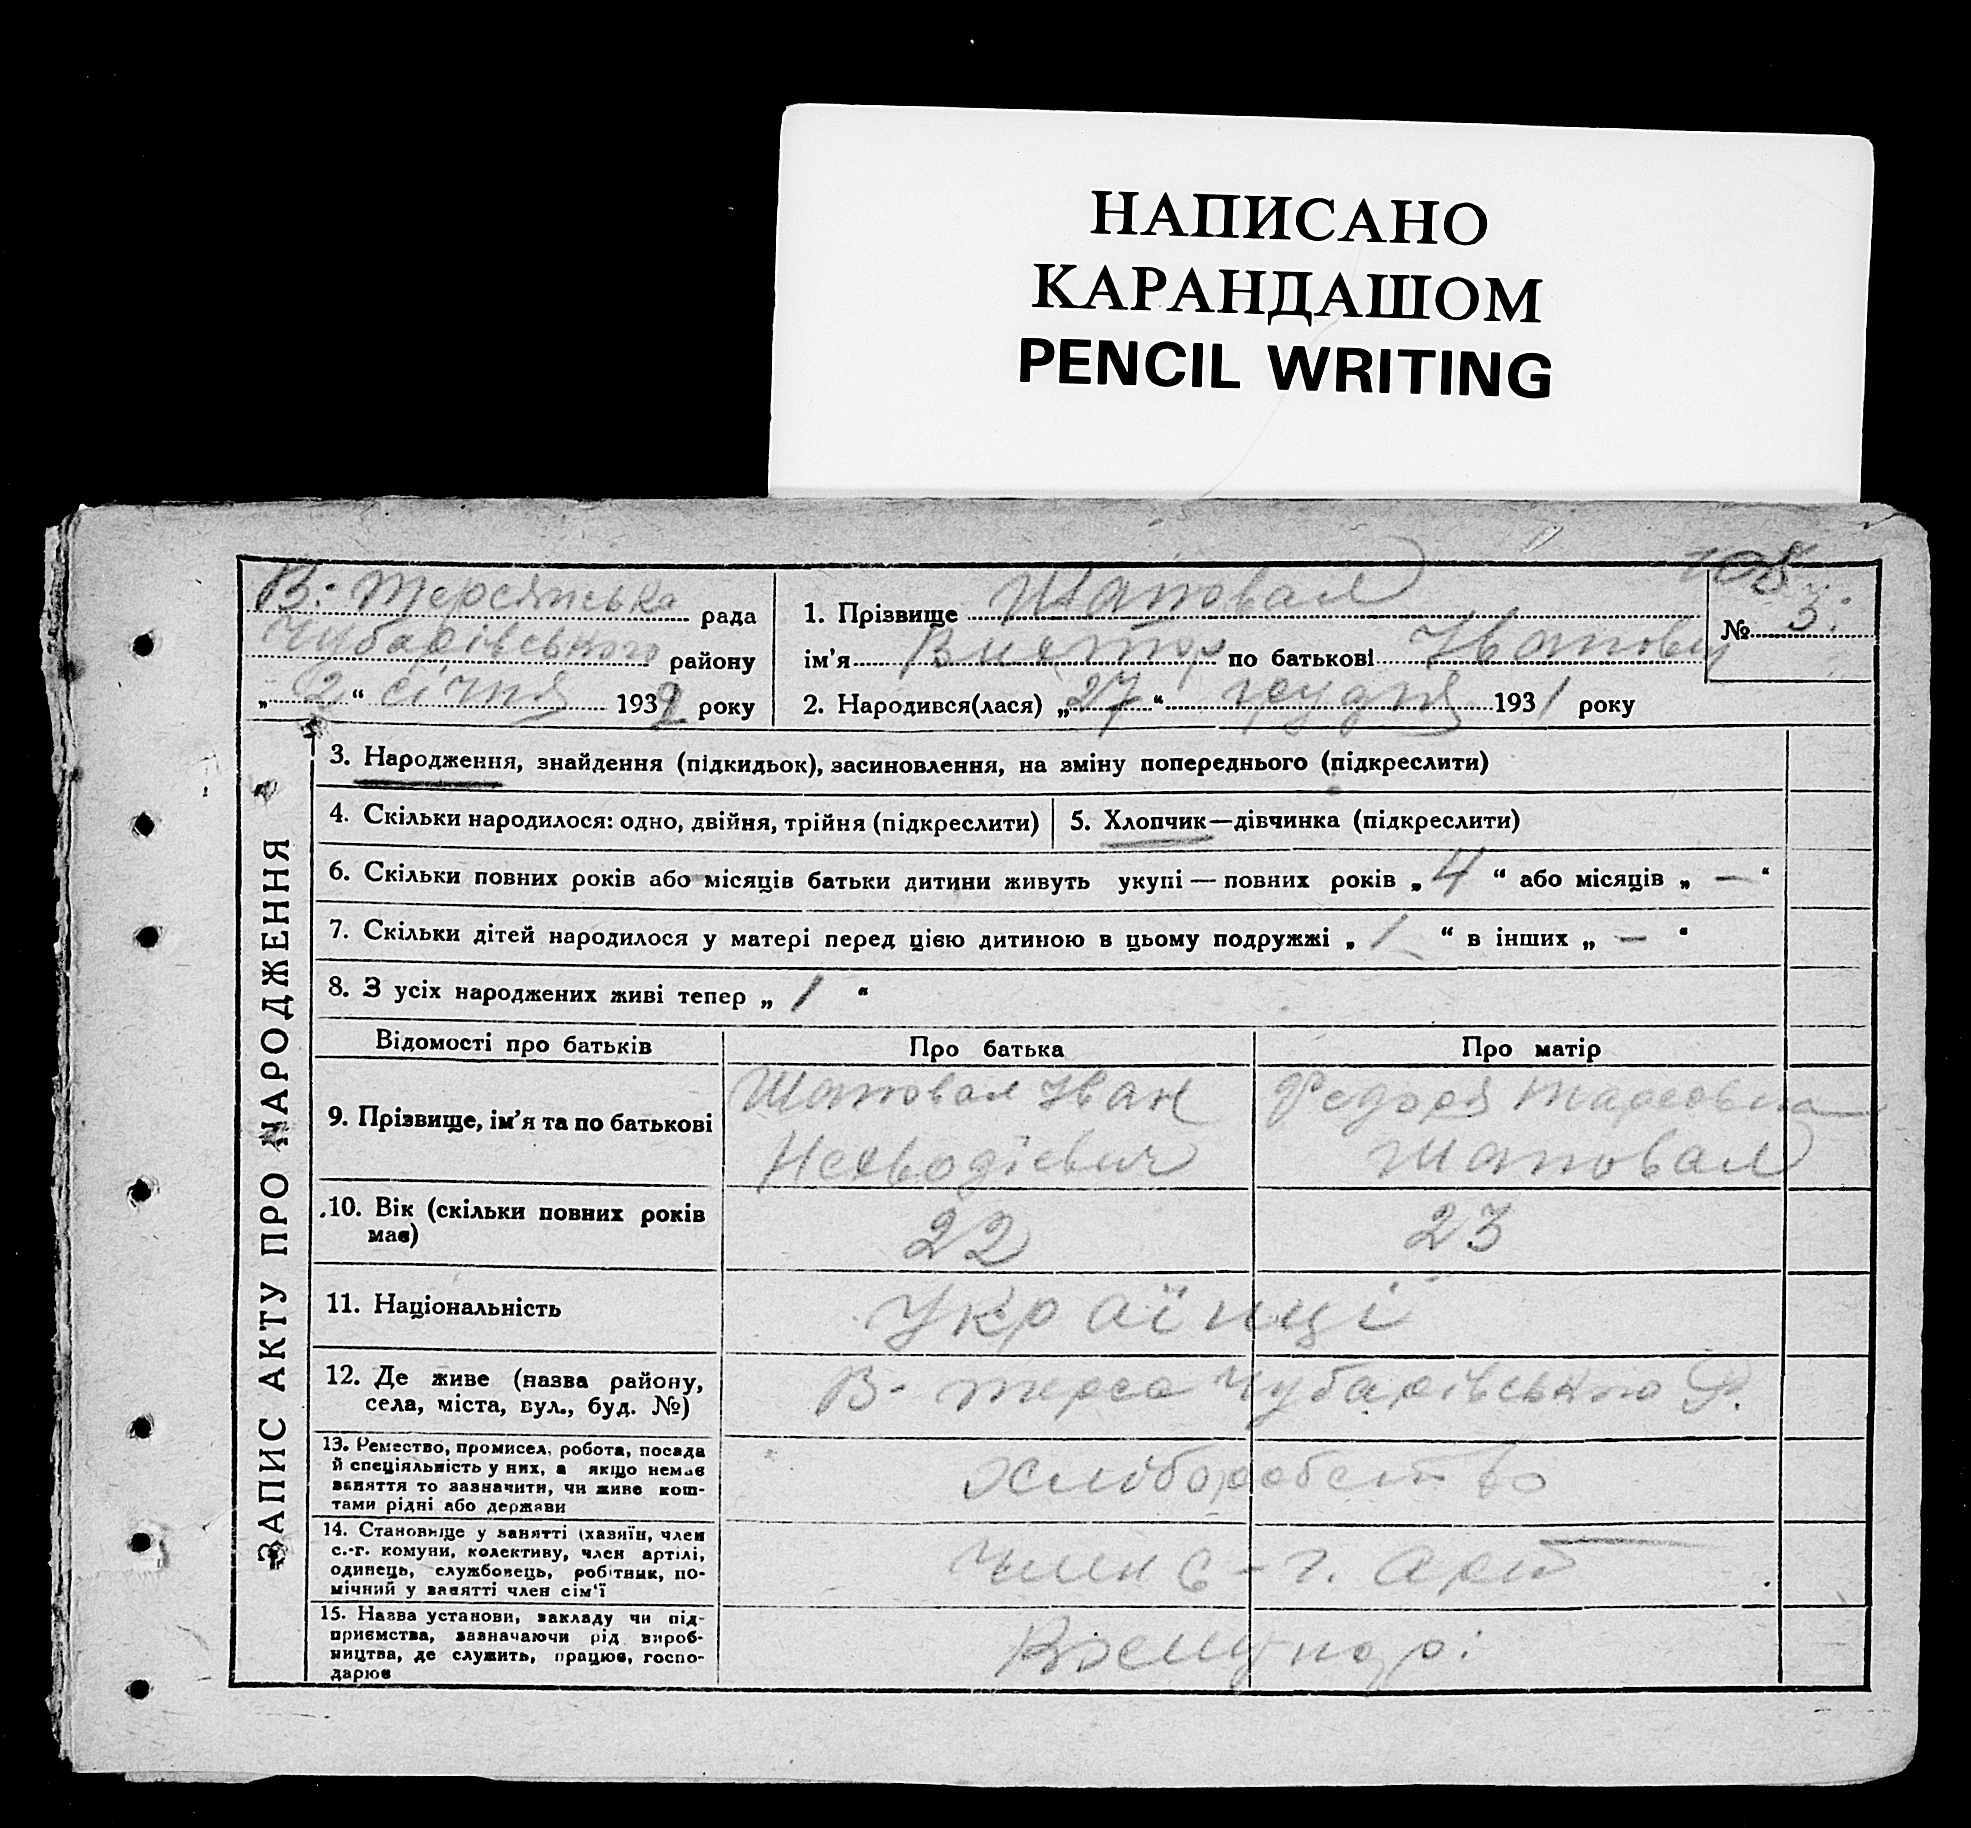 НАПИСАНО
КАРАНДАШОМ
PENCIL WRITING
108
В.-Терсянська рада
Чубарівського району
„ 2 “ січня 1932 року
1. Прізвище Шаповал
ім’я Виктор по батькові Іванович
2. Народився(лася) „ 27 “ грудня 1931 року
№ 3.
ЗАПИС АКТУ ПРО НАРОДЖЕННЯ
3. Народження, знайдення (підкидьок), засиновлення, на зміну попереднього (підкреслити)
4. Скільки народилося: одно, двійня, трійня (підкреслити)
5. Хлопчик—дівчинка (підкреслити)
6. Скільки повних років або місяців батьки дитини живуть укупі — повних років „ 4 “ або місяців „ — “
7. Скільки дітей народилося у матері перед цією дитиною в цьому подружжі „ 1 “ в інших „ — “
8. З усіх народжених живі тепер „ 1 “
Відомості про батьків
Про батька
Про матір
9. Прізвище, ім’я та по батькові
Шаповал Іван
Федора Тарасовна
Шаповал
10. Вік (скільки повних років
має)
22
23
11. Національність
Українці
12. Де живе (назва району,
села, міста, вул., буд. №)
В-Терса Чубарівського Р.
13. Ремество, промисел, робота, посада
й спеціяльність у них, а якщо немає
заняття то зазначити, чи живе кош-
тами рідні або держави
Хліборобство
14. Становище у занятті (хазяїн, член
с.-г. комуни, колективу, член артілі,
одинець, службовець, робітник, по-
мічний у занятті член сім’ї
член с-г. арт
15. Назва установи, закладу чи під-
приємства, зазначаючи рід вироб-
ництва, де служить, працює, госпо-
дарює